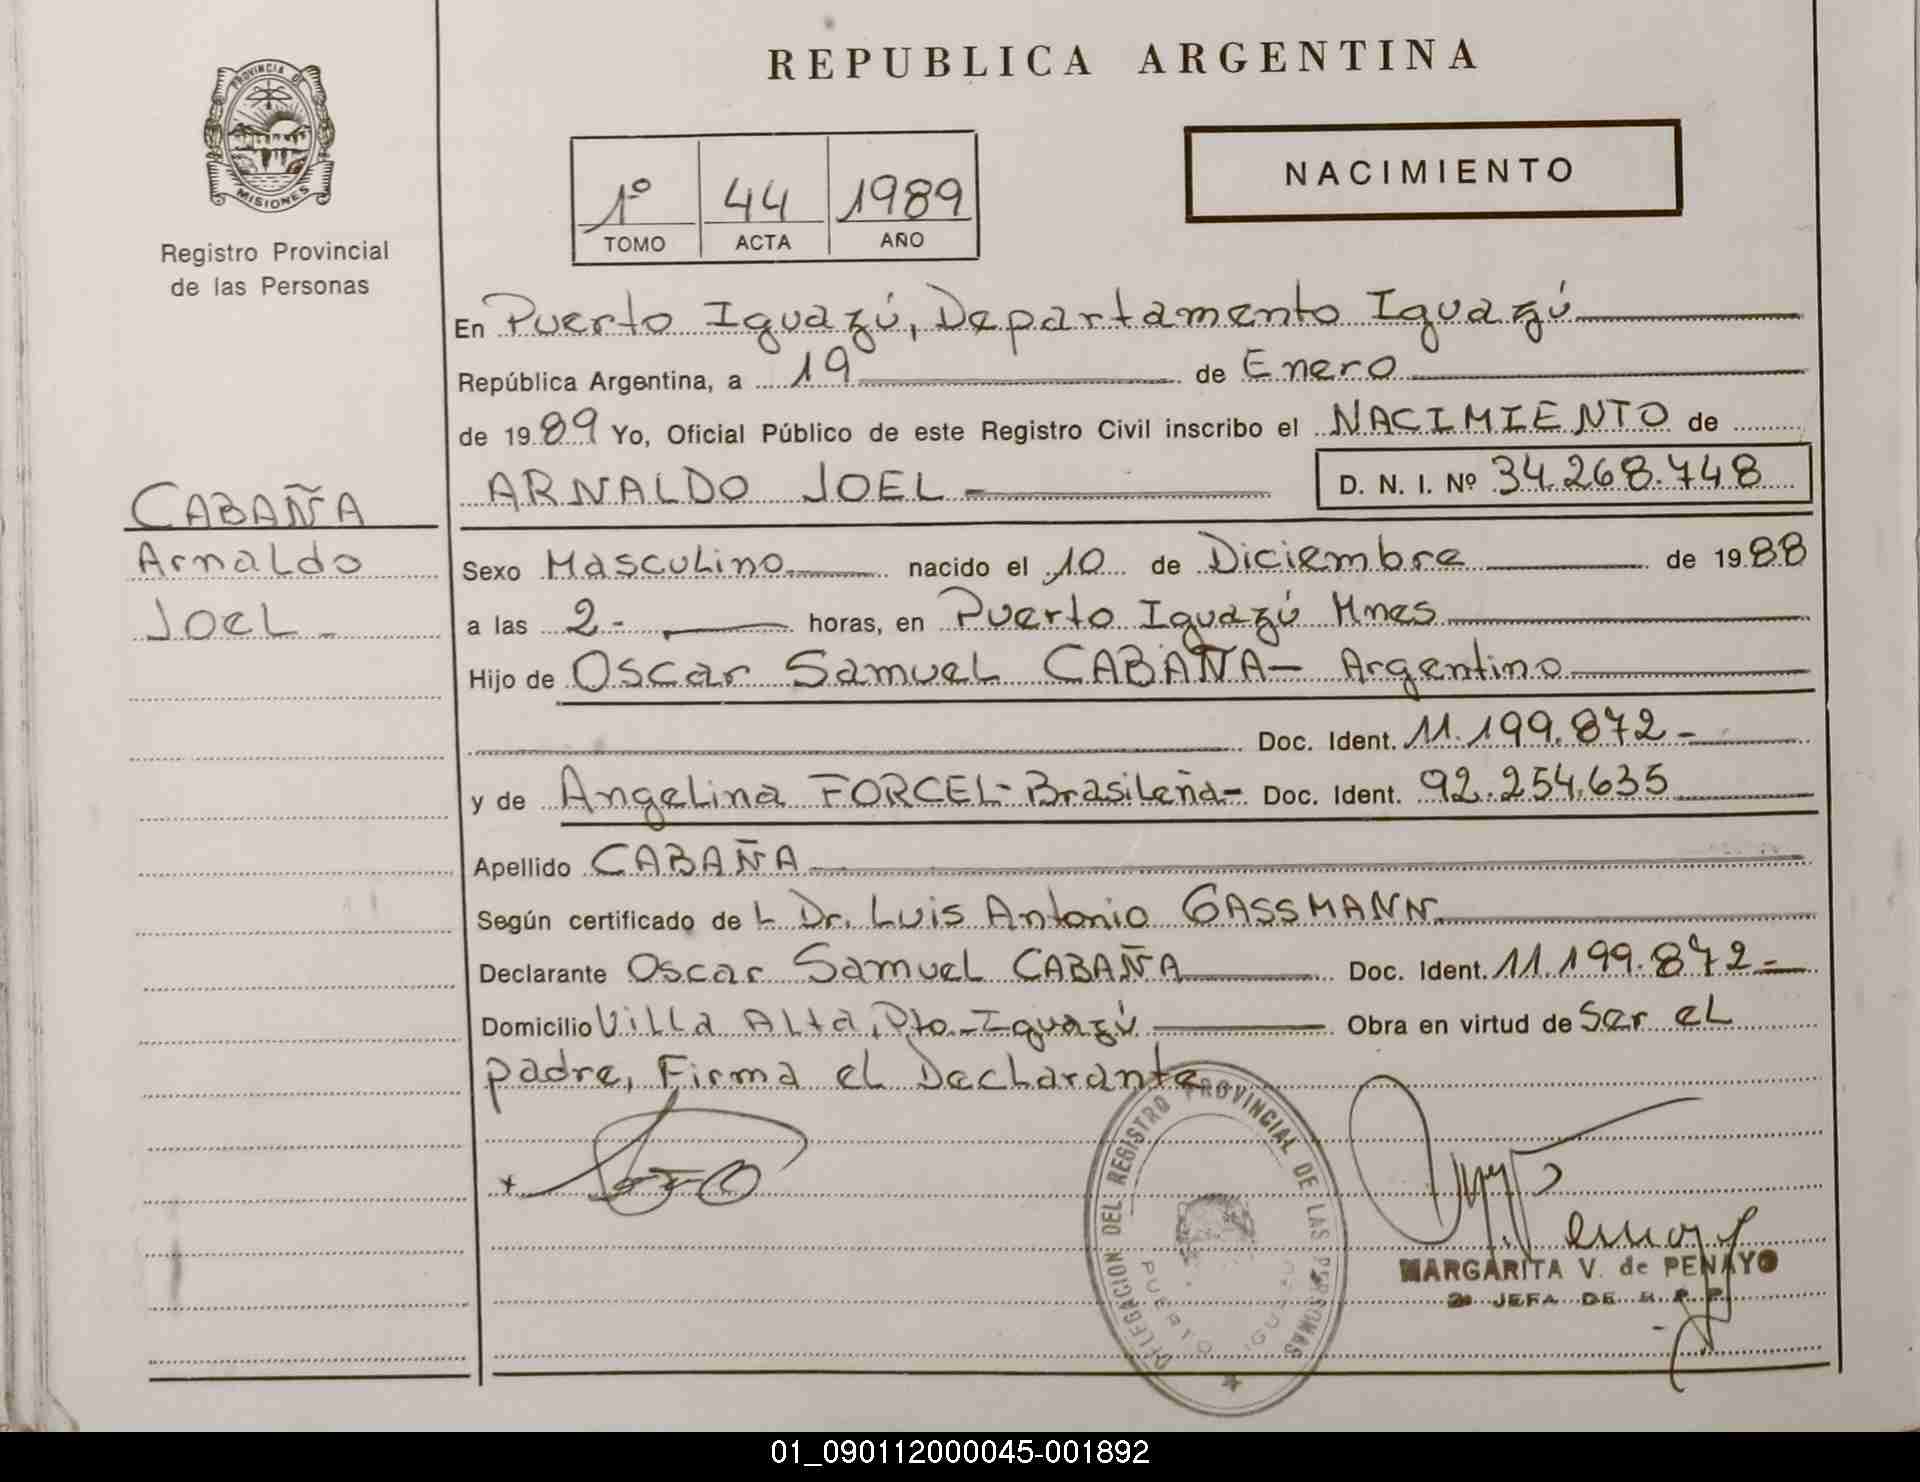 REPUBLICA ARGENTINA
PROVINCIA DE
MISIONES
Registro Provincial
de las Personas
1º 44 1989
TOMO ACTA AÑO
NACIMIENTO
En Puerto Iguazú, Departamento Iguazú
República Argentina, a 19 de Enero
de 1989 Yo, Oficial Público de este Registro Civil inscribo el NACIMIENTO de
ARNALDO JOEL - D. N. I. Nº 34.268.748
CABAÑA
Arnaldo
Joel -
Sexo Masculino nacido el 10 de Diciembre de 1988
a las 2- horas, en Puerto Iguazú Mnes
Hijo de Oscar Samuel CABAÑA - Argentino
Doc. Ident. 11.199.872-
y de Angelina FORCEL- Brasileña- Doc. Ident. 92.254.635
Apellido CABAÑA
Según certificado de L Dr. Luis Antonio GASSMANN
Declarante Oscar Samuel CABAÑA Doc. Ident. 11.199.872-
Domicilio Villa Alta, Pto. Iguazú Obra en virtud de Ser el
padre, Firma el Declarante
DELEGACION DEL REGISTRO PROVINCIAL DE LAS PERSONAS
PUERTO IGUAZU
MARGARITA V. de PENAYO
JEFA DE R. P. P.
01_090112000045-001892